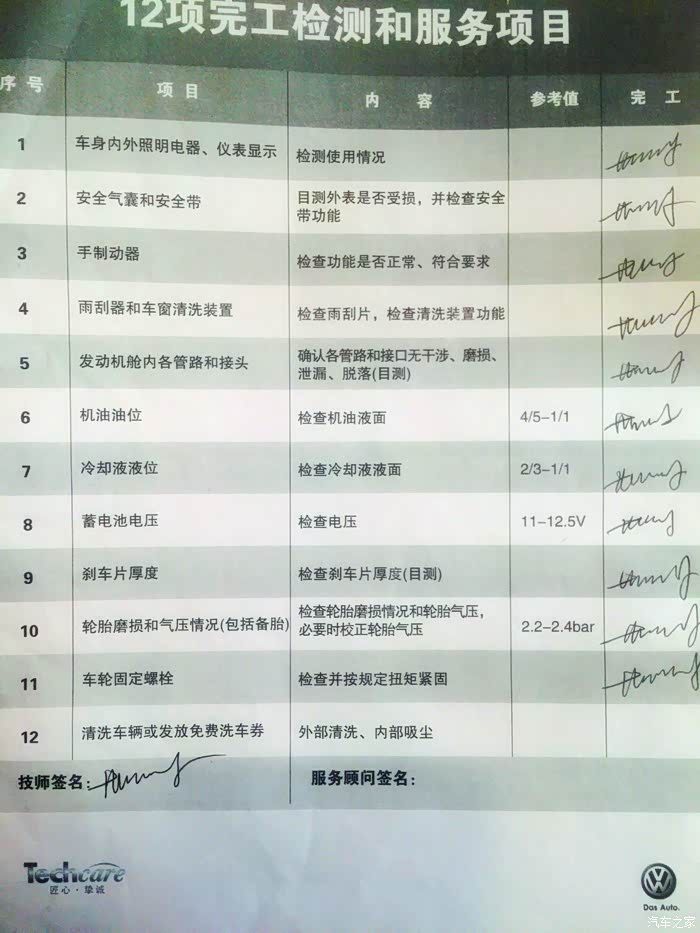 12项完工检测和服务项目
序 号 项 目 内 容 参考值 完 工
1 车身内外照明电器、仪表显示 检测使用情况
2 安全气囊和安全带 目测外表是否受损，并检查安全
带功能
3 手制动器 检查功能是否正常、符合要求
4 雨刮器和车窗清洗装置 检查雨刮片，检查清洗装置功能
5 发动机舱内各管路和接头 确认各管路和接口无干涉、磨损、
泄漏、脱落(目测)
6 机油油位 检查机油液面 4/5-1/1
7 冷却液液位 检查冷却液液面 2/3-1/1
8 蓄电池电压 检查电压 11-12.5V
9 刹车片厚度 检查刹车片厚度(目测)
10 轮胎磨损和气压情况(包括备胎) 检查轮胎磨损情况和轮胎气压， 2.2-2.4bar
必要时校正轮胎气压
11 车轮固定螺栓 检查并按规定扭矩紧固
12 清洗车辆或发放免费洗车券 外部清洗、内部吸尘
技师签名： 服务顾问签名：
Techcare
匠心·挚诚
Das Auto.
汽车之家